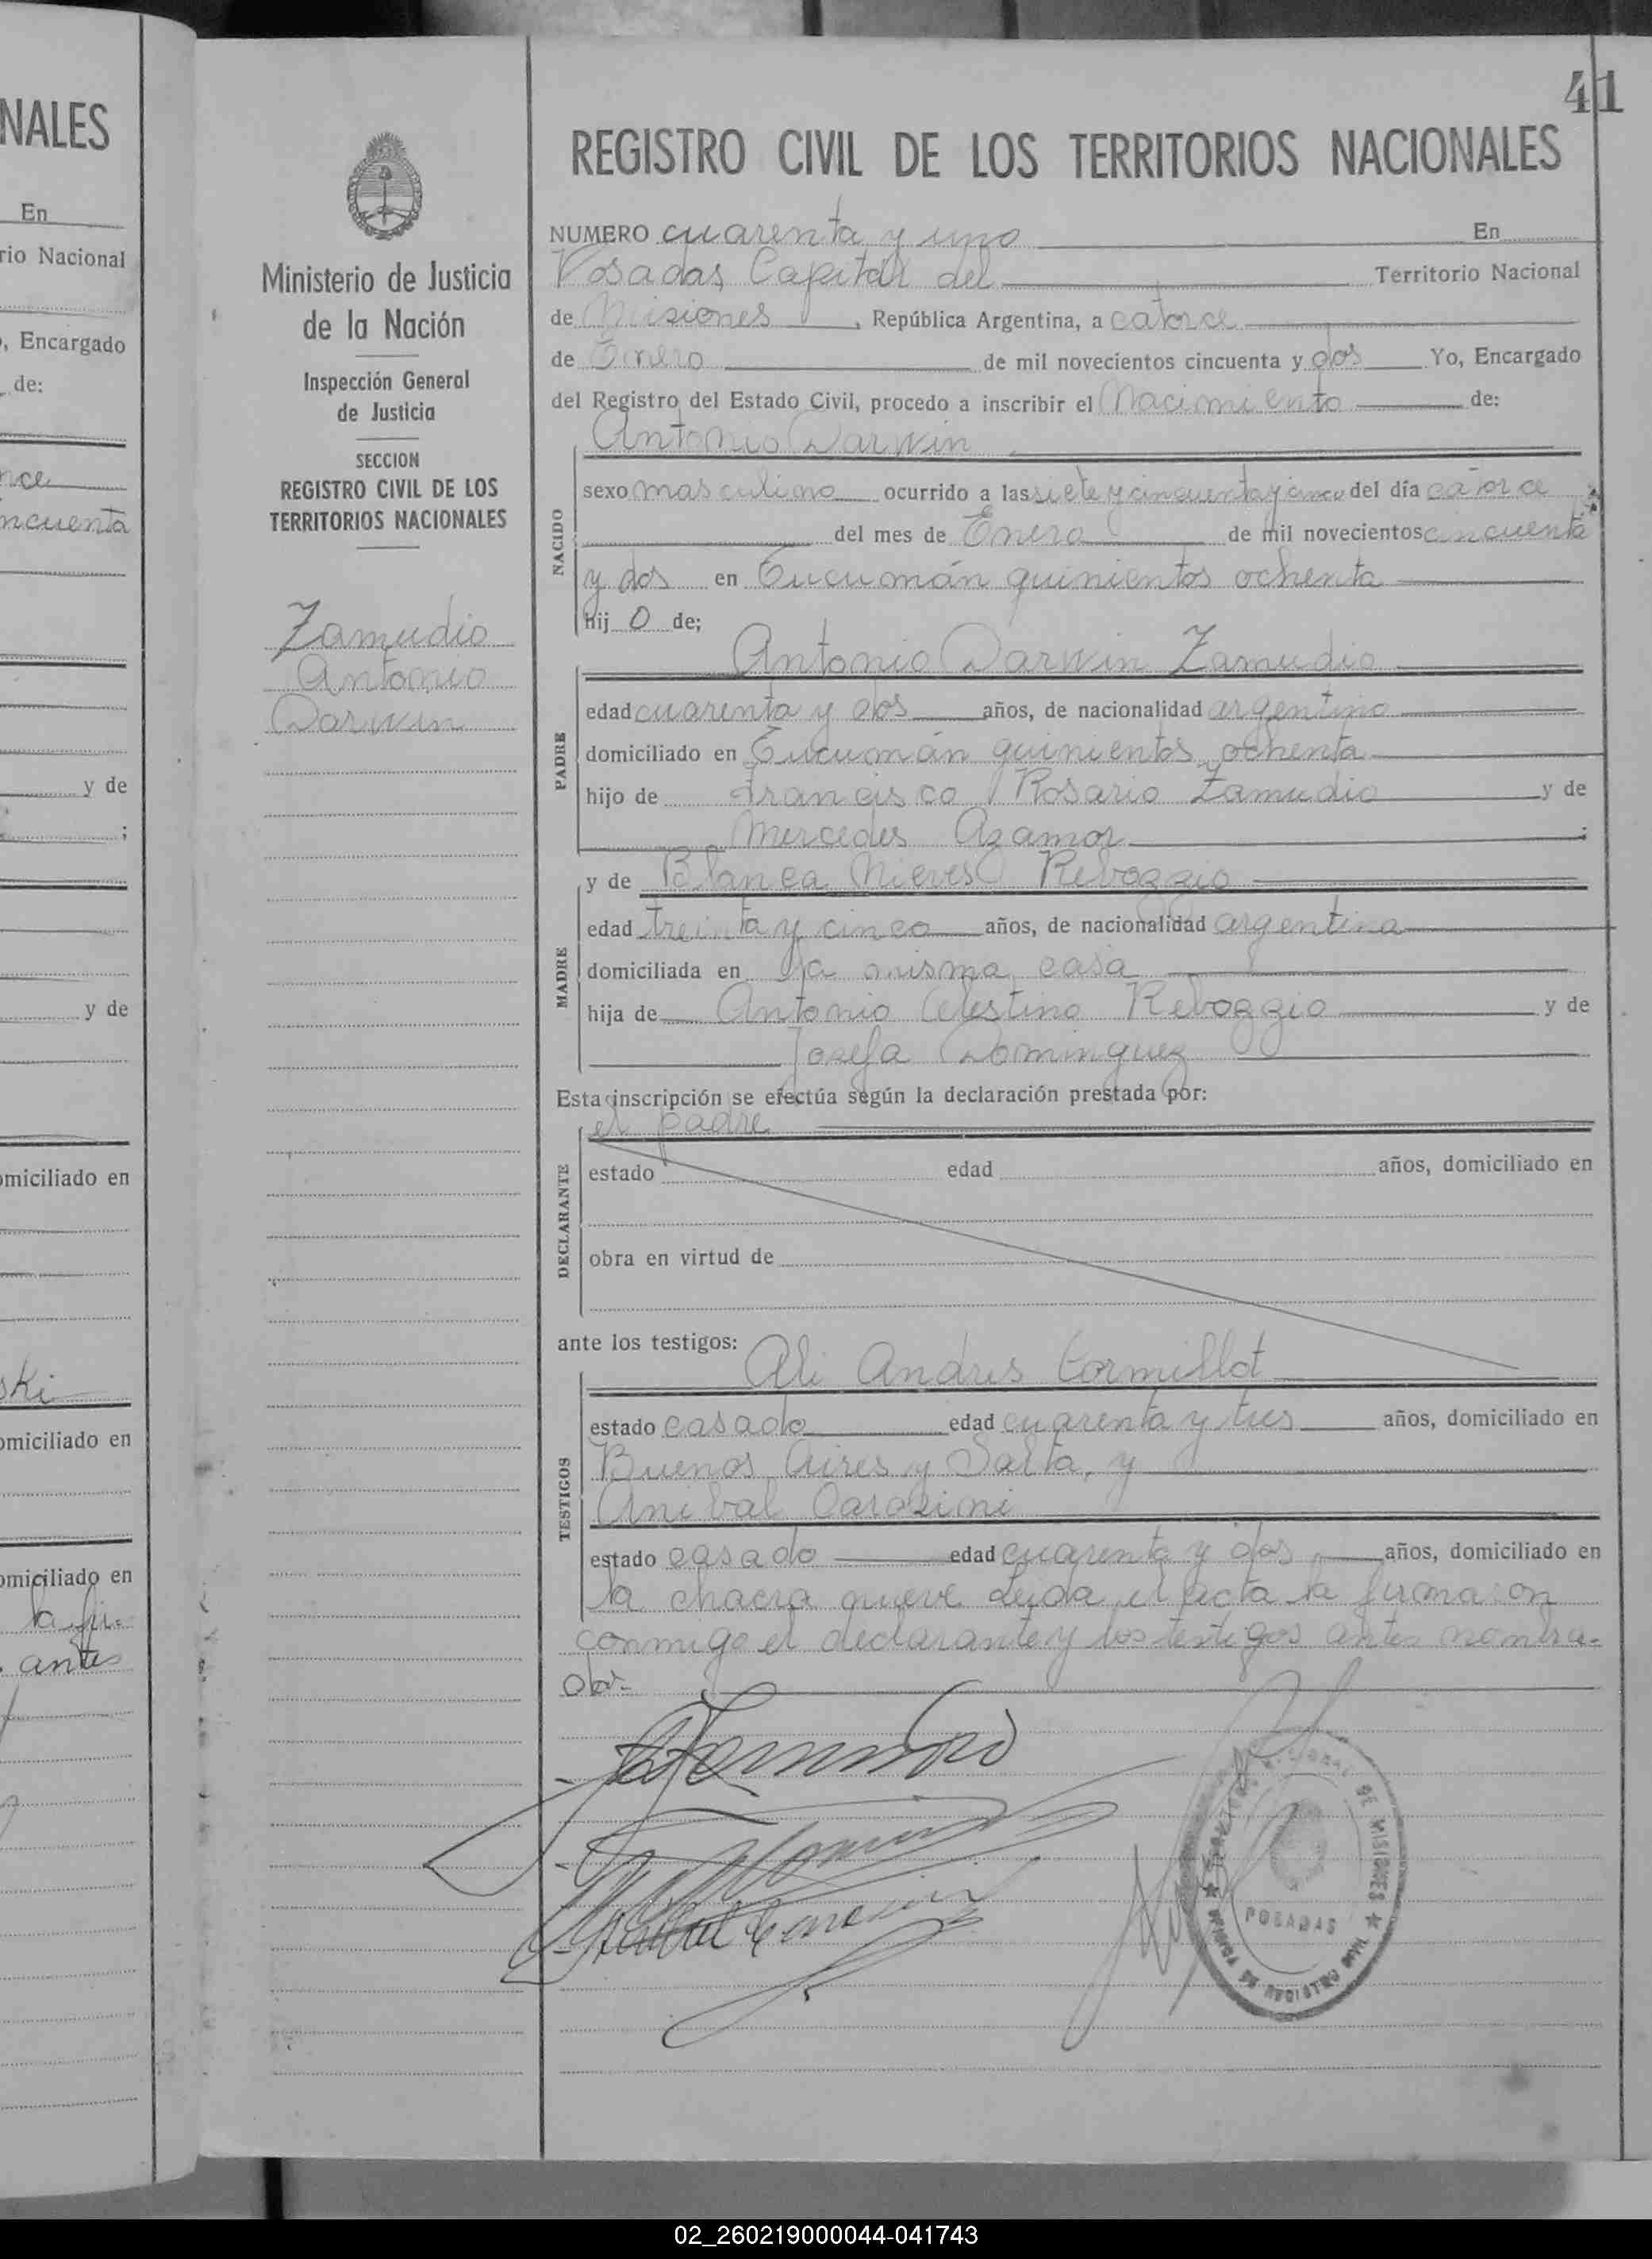 NALES
En
rio Nacional
, Encargado
de:
nce
ncuenta
y de
;
y de
omiciliado en
ski
omiciliado en
omiciliado en
la fir-
antes
Ministerio de Justicia
de la Nación
Inspección General
de Justicia
SECCION
REGISTRO CIVIL DE LOS
TERRITORIOS NACIONALES
Zamudio
Antonio
Darwin
41
REGISTRO CIVIL DE LOS TERRITORIOS NACIONALES
NUMERO cuarenta y uno En
Posadas Capital del Territorio Nacional
de Misiones, República Argentina, a catorce
de Enero de mil novecientos cincuenta y dos Yo, Encargado
del Registro del Estado Civil, procedo a inscribir el Nacimiento de:
NACIDO
Antonio Darwin
sexo masculino ocurrido a las siete y cincuenta y cinco del día catorce
del mes de Enero de mil novecientos cincuenta
y dos en Tucumán quinientos ochenta
hij o de;
PADRE
Antonio Darwin Zamudio
edad cuarenta y dos años, de nacionalidad argentino
domiciliado en Tucumán quinientos ochenta
hijo de Francisco Rosario Zamudio y de
Mercedes Azamor;
MADRE
y de Blanca Nieves Reboggio
edad treinta y cinco años, de nacionalidad argentina
domiciliada en la misma casa
hija de Antonio Celestino Reboggio y de
Josefa Dominguez
Esta inscripción se efectúa según la declaración prestada por:
DECLARANTE
el padre
estado edad años, domiciliado en
obra en virtud de
ante los testigos: Ali Andres Cormillot
TESTIGOS
estado casado edad cuarenta y tres años, domiciliado en
Buenos Aires y Salta, y
Anibal Carozini
estado casado edad cuarenta y dos años, domiciliado en
la chacra nueve Leida el acta la firmaron
conmigo el declarante y los testigos antes nombra-
dos-
DE MISIONES
POSADAS
OFICINA DE REGISTRO CIVIL
02_260219000044-041743